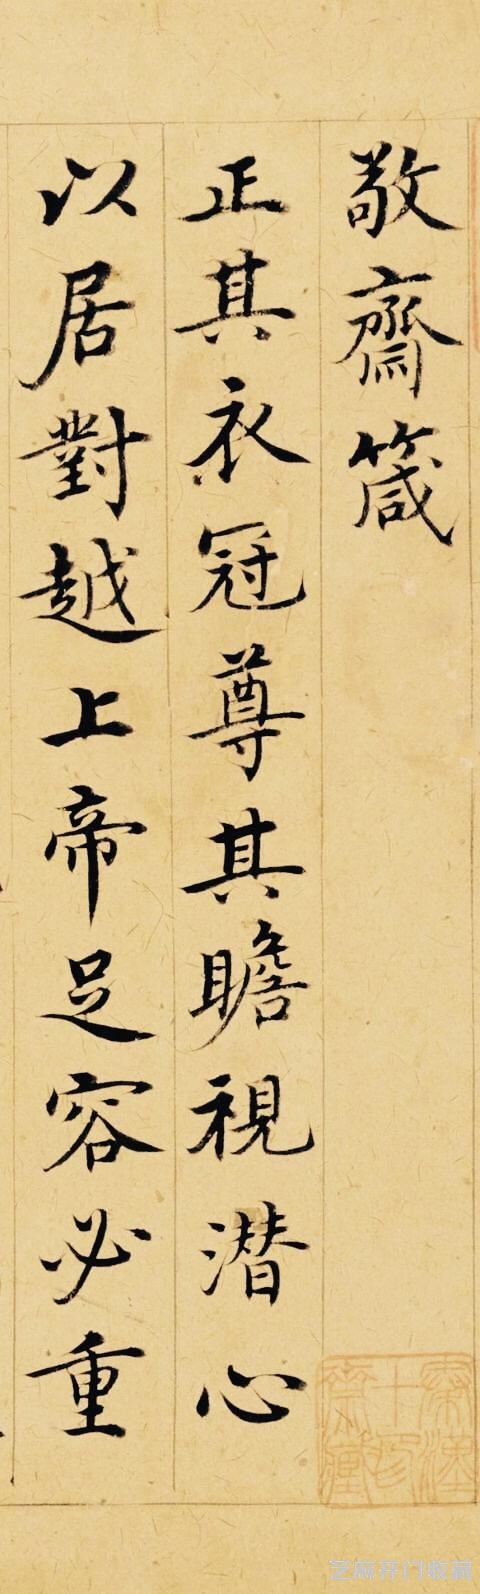 敬齋箴
正其衣冠尊其瞻視潜心
以居對越上帝足容必重
芝麻开门收藏